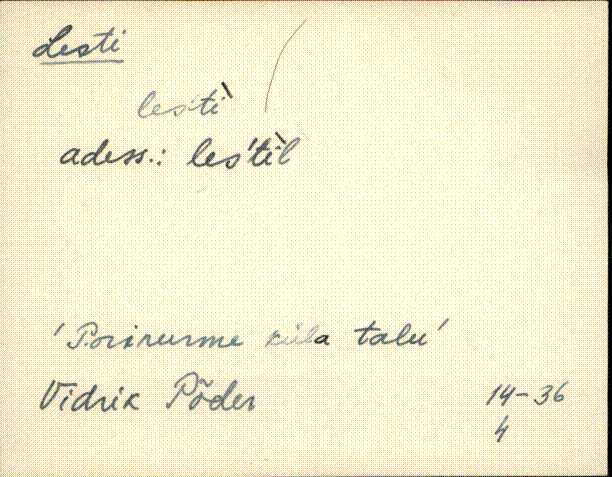 Lesti
les'tì
adess.: les'tìl
'Porirurme küla talu'
Vidrik Põder
14-36
4